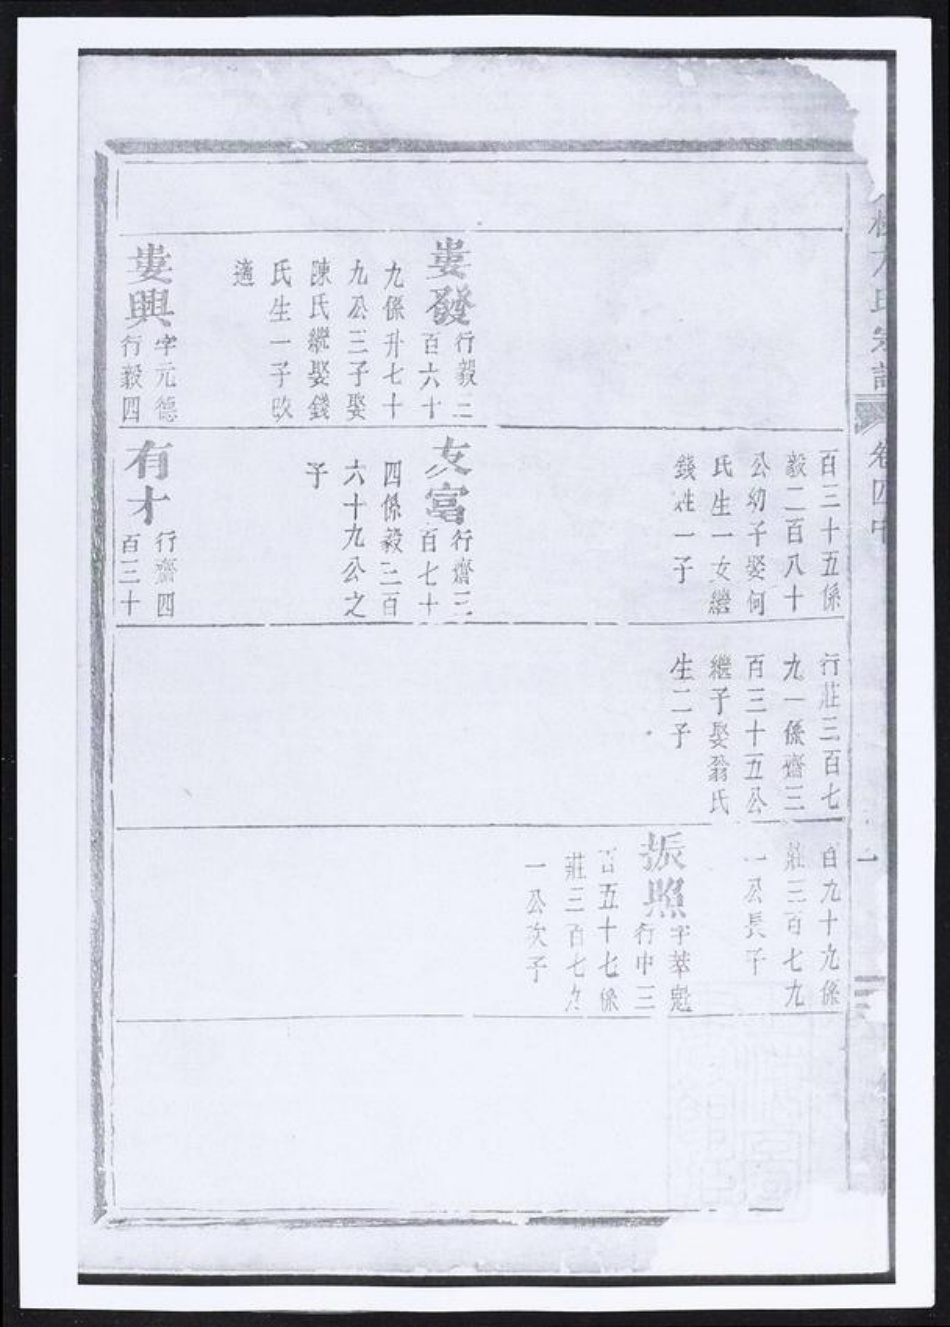 氏宗譜
卷四中
一
婁發
行毅三
百六十
九係升七十
九公三子娶
陳氏繼娶錢
氏生一子改
適
婁興
字元德
行毅四
百三十五係
毅二百八十
公幼子娶何
氏生一女繼
錢姓一子
友富
行齋三
百七十
四係毅三百
六十九公之
子
有才
行齋四
百三十
行莊三百七
九一係齋三
百三十五公
繼子娶翁氏
生二子
百九十九係
莊三百七九
一公長子
振照
字萃魁
行中三
百五十七係
莊三百七九
一公次子